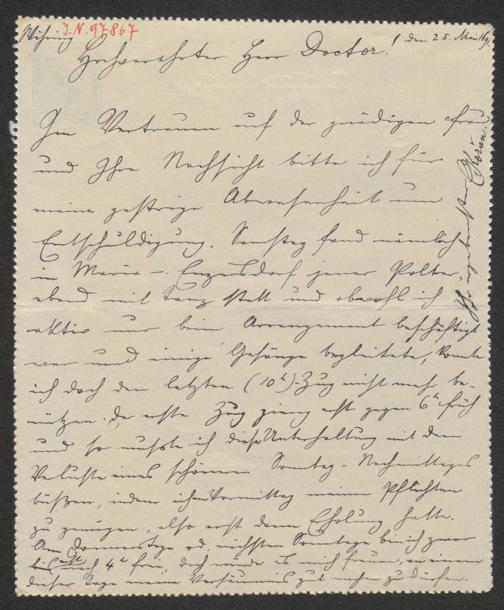 Währing
I.N. 97867
den 25. Mai 189
Hochverehrter Herr Doctor!
Im Vertrauen auf der gnädigen Frau
und Ihre Nachsicht bitte ich für
meine gestrige Abwesenheit um
Entschuldigung. Samstag fand nämlich
in Maria-Enzersdorf jener Polter-
abend mit Tanz statt und obwohl ich
aktiv nur beim Arrangement beschäftigt
war und einige Gesänge begleitete, konnte
ich doch den letzten (10h) Zug nicht mehr be-
nützen. Der erste Zug ging erst gegen 6h früh
und so mußte ich diese Unterhaltung mit dem
Verluste eines schönen Sonntag-Nachmittages
büßen, indem ich Vormittag meinen Pflichten
zu genügen, also erst dann Erholung hatte.
Am Donnerstage od. nächsten Sonntage bin ich zwar
erst
bis nach 4h frei, doch würde es mich freuen, an einem
dieser Tage mein Versäumnis gut machen zu dürfen.
Ihr ergebenster